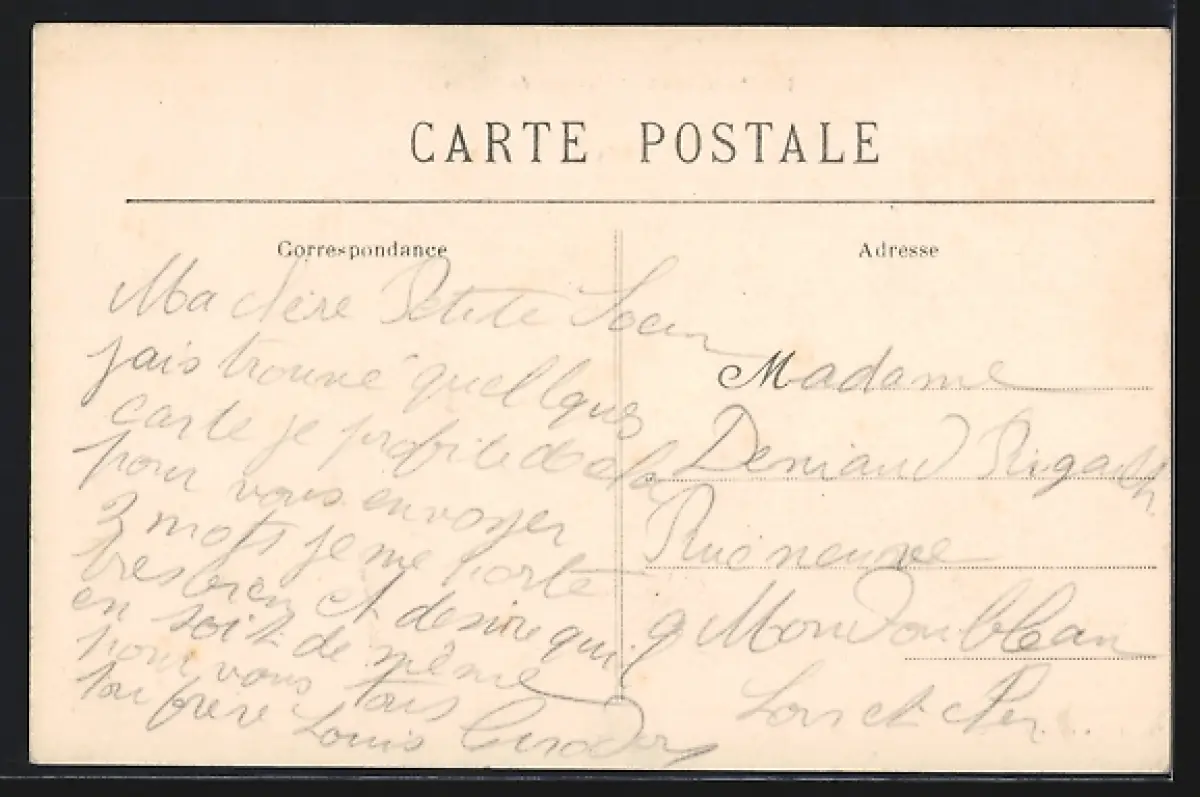 CARTE POSTALE
Correspondance
Adresse
Ma chère Petite Soeur
jais trouvé quellques
carte je profite de
pour vous envoyer
3 mots je me porte
tres bien et desire qui
en soit de même
pour vous tous
ton frère Louis
Madame
Deniaud Rigault
Rue neuve
a Mondoubleau
Loir et Cher